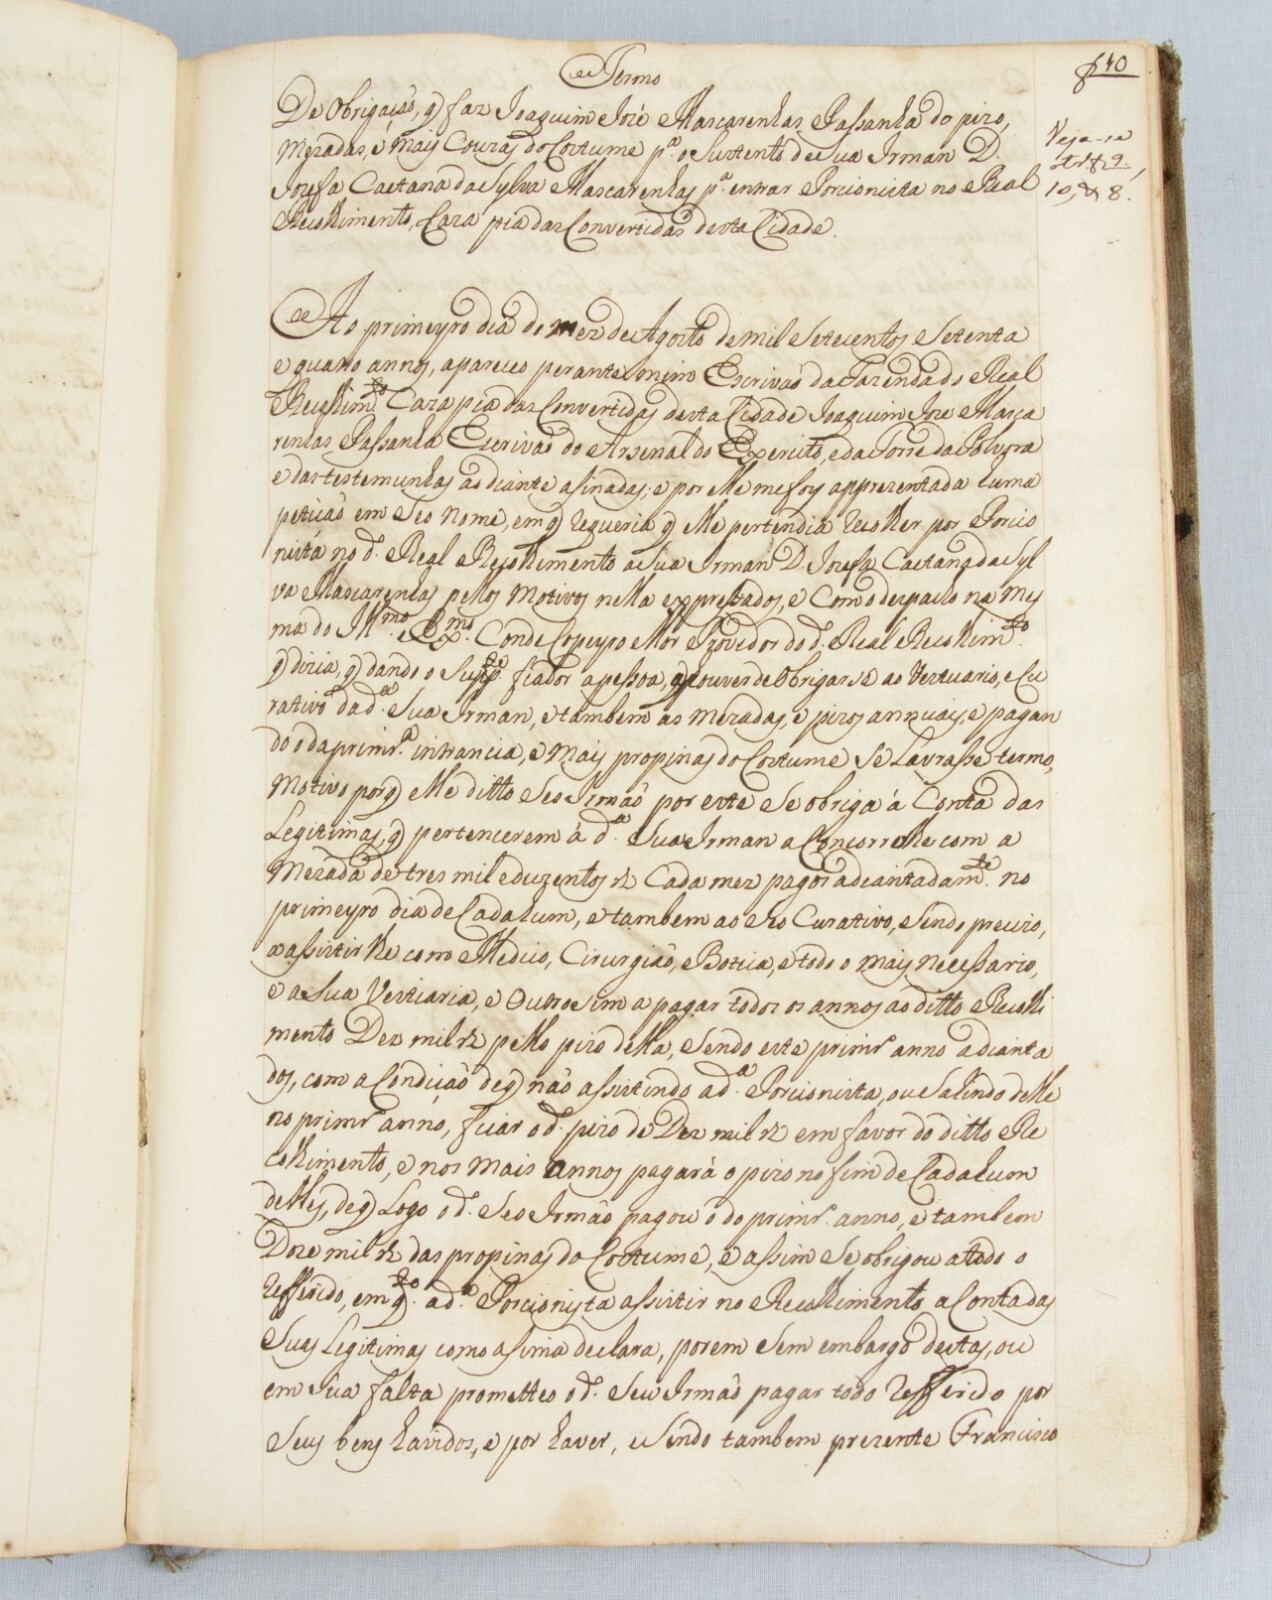 f 40
Termo
De Obrigaçaõ, q̃ faz Joaquim José Mascarenhas Passanha do pizo,
Mezadas, e mais Couzas do Costume p.ª o Sustento de Sua Irman D.
Jozefa Caetana da Sylva Mascarenhas p.ª entrar Porcionista no Real
Recolhimento, Caza pia das Convertidas desta Cidade.
Veja-se
10, & 8.
Ao primeyro dia do mez de Agosto de mil Setecentos e Setenta
e quatro annos, apareceo perante mim Escrivaõ da Fazenda do Real
Recolhim.to Caza pia das Convertidas desta Cidade Joaquim Joze Masca
renhas Passanha Escrivaõ do Arsenal do Exercito, e da Torre da Polvora
e das testemunhas ao diante asinadas; e por elle me foy apprezentada huma
petiçaõ em Seo nome, em q̃ requeria q̃ elle pertendia recolher por Porcio
nista no d.º Real Recolhimento a Sua Irman D. Jozefa Caetana da Syl
va Mascarenhas pellos Motivos nella expressados, e Com o despacho na Mes
ma do Ill.mo e Ex.mo Conde Copeyro Mor Provedor do d.º Real Recolhim.to
q̃ dizia, q̃ dando o Supp.te fiador a pessoa, q̃ houver de Obrigarse ao Vestuario, e Cu
rativo da d.ª Sua Irman, e tambem as Mezadas, e pizos annuais, e pagan
do o da primr.ª intrancia, e mais propinas do Costume Se Lavrasse termo,
Motivo porq̃ elle ditto Seo Irmaõ por este Se obriga á Conta das
Legitimas, q̃ pertencerem á d.ª Sua Irman a Concorrerlhe com a
Mezada de tres mil e duzentos rz Cada mez pagos adiantadam.te no
primeyro dia de Cada hum, e tambem ao Seo Curativo, Sendo precizo,
a assistirlhe como Medico, Cirurgiaõ, e Botica, e todo o mais necessario,
e a Sua Vestiaria, e Outrosim a pagar todos os annos ao ditto Recolhi
mento Dez mil rz pello pizo della, Sendo este primr.º anno adianta
dos, com a Condiçaõ de q̃ naõ assistindo a d.ª Porcionista, ou Sahindo delle
no primr.º anno, ficar o d.º pizo de Dez mil rz em favor do ditto Re
colhimento, e nos mais annos pagará o pizo no fim de Cada hum
delles, de q̃ Logo o d.º Seo Irmaõ pagou o do primr.º anno, e tambem
Doze mil rz das propinas do Costume, e assim Se obrigou a todo o
refferido, em q.to a d.ª Porcionista assistir no Recolhimento a Conta das
Suas Legitimas como asima declara, porem Sem embargo destas, ou
em Sua falta prometteo o d.º Seu Irmaõ pagar todo refferido por
Seus bens havidos, e por haver, e Sendo tambem prezente Francisco